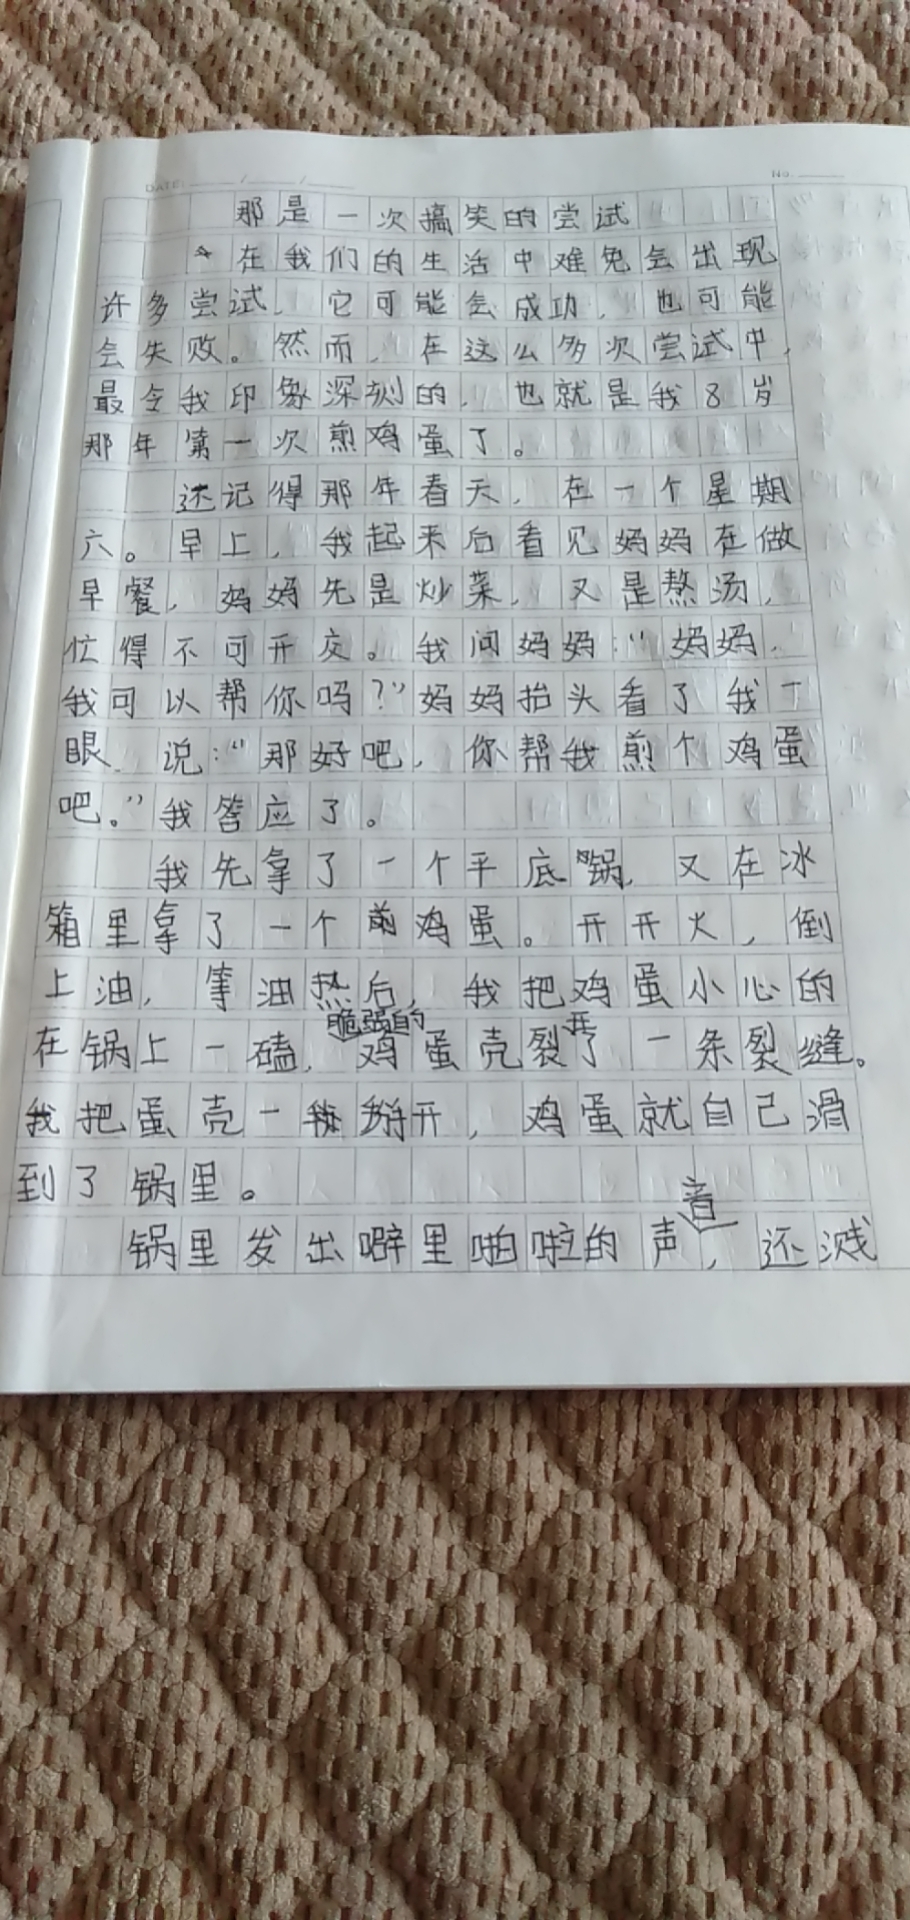 DATE: / /
No.
那是一次搞笑的尝试
在我们的生活中难免会出现
许多尝试，它可能会成功，也可能
会失败。然而，在这么多次尝试中，
最令我印象深刻的，也就是我8岁
那年第一次煎鸡蛋了。
还记得那年春天，在一个星期
六。早上，我起来后看见妈妈在做
早餐，妈妈先是炒菜，又是熬汤，
忙得不可开交。我问妈妈：“妈妈，
我可以帮你吗？”妈妈抬头看了我一
眼 说：“那好吧，你帮我煎个鸡蛋
吧。”我答应了。
我先拿了一个平底锅，又在冰
箱里拿了一个鸡蛋。开开火，倒
上油，等油热后，我把鸡蛋小心的
在锅上一磕，脆弱的鸡蛋壳裂开了一条裂缝。
我把蛋壳一掰开，鸡蛋就自己滑
到了锅里。
锅里发出噼里啪啦的声音，还溅